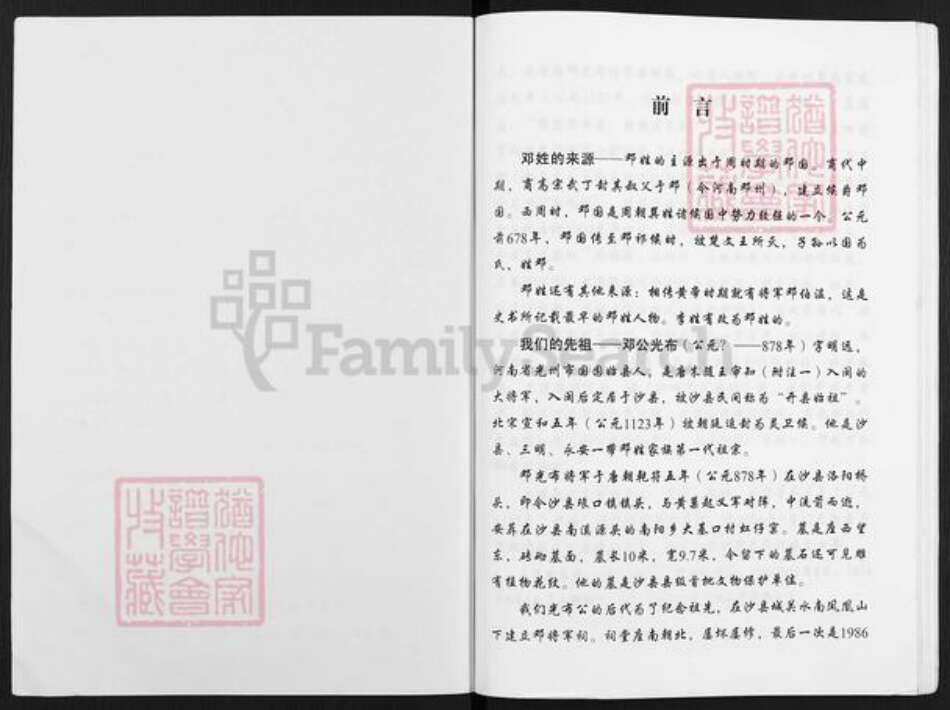 前 言
邓姓的来源——邓姓的主源出于周时期的邓国。商代中
期，商高宗武丁封其叔父于邓（今河南邓州），建立候爵邓
国。西周时，邓国是周朝异姓诸候国中势力较强的一个。公元
前678年，邓国传至邓祁候时，被楚文王所灭，子孙以国为
氏，姓邓。
邓姓还有其他来源：相传黄帝时期就有将军邓伯温，这是
史书所记载最早的邓姓人物。李姓有改为邓姓的。
我们的先祖——邓公光布（公元？——878年）字明远，
河南省光州市固固始县人，是唐末随王审知（附注一）入闽的
大将军，入闽后定居于沙县，被沙县民间称为“开县始祖”。
北宋宣和五年（公元1123年）被朝廷追封为灵卫候。他是沙
县、三明、永安一带邓姓家族第一代祖宗。
邓光布将军于唐朝乾符五年（公元878年）在沙县洛阳桥
头，即今沙县琅口镇镇头，与黄巢起义军对阵，中流箭而逝，
安葬在沙县南溪源头的南阳乡大基口村虹仔窠。墓是座西坐
东，砖砌墓面，墓长10米，宽9.7米，今留下的墓石还可见雕
有植物花纹。他的墓是沙县县级首批文物保护单位。
我们光布公的后代为了纪念祖先，在沙县城关水南凤凰山
下建立邓将军祠。祠堂座南朝北，屡坏屡修，最后一次是1986
FamilySearch